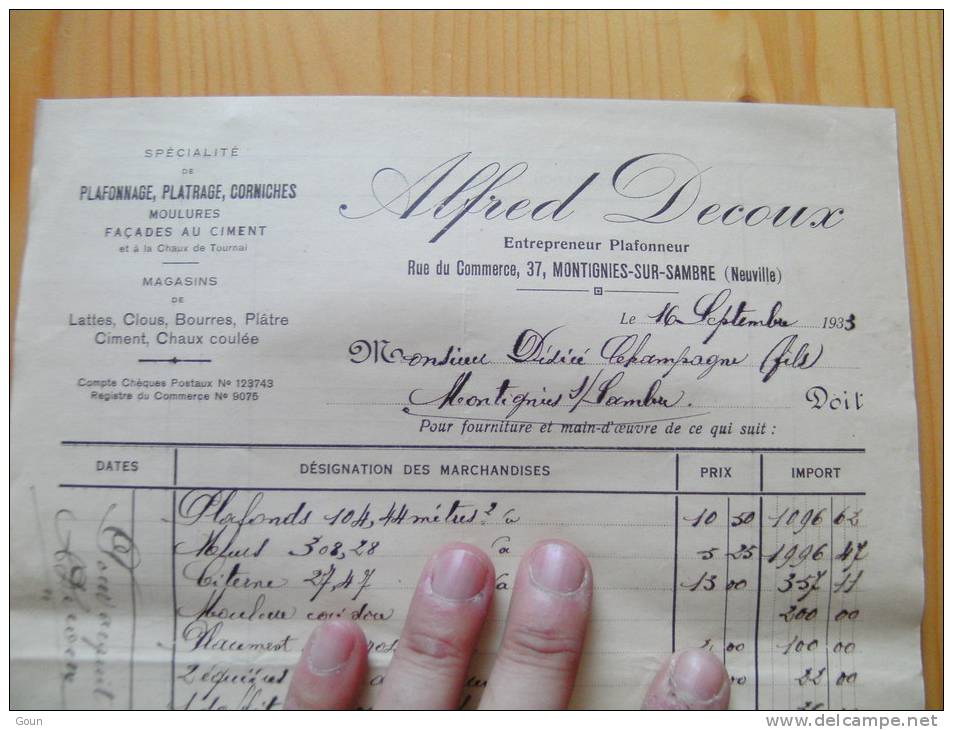 SPÉCIALITÉ
DE
PLAFONNAGE, PLATRAGE, CORNICHES
MOULURES
FAÇADES AU CIMENT
et à la Chaux de Tournai
MAGASINS
DE
Lattes, Clous, Bourres, Plâtre
Ciment, Chaux coulée
Compte Chèques Postaux Nº 123743
Registre du Commerce Nº 9075
Alfred Decoux
Entrepreneur Plafonneur
Rue du Commerce, 37, MONTIGNIES-SUR-SAMBRE (Neuville)
Le 16 Septembre 1933
Monsieur Champagne (fils)
Montignies s/Sambre. Doit
Pour fourniture et main-d'œuvre de ce qui suit :
DATES DÉSIGNATION DES MARCHANDISES PRIX IMPORT
Plafonds 104,44 mètres 2 a 10 50 1096 62
Murs 308,28 a 5 25 1996 47
Citerne 27,47 a 13 00 357 11
Moulure 200 00
Placement 00 100 00
2 00 22 00
Goun
www.delcampe.net